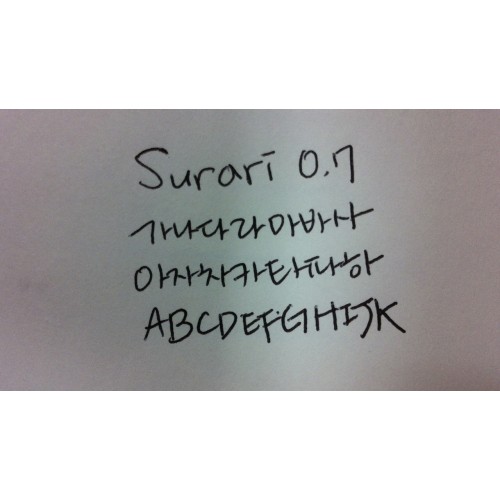 Surari 0.7
가나다라마바사
아자차카타파하
ABCDEFGHIJK